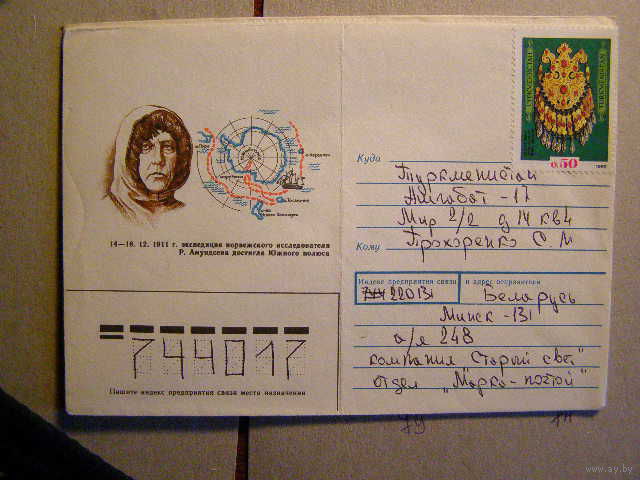 0.50
1992
Куда
Туркменистан
Ашгабат - 17
Мир 2/2 д 14 кв 4
Кому
Прохоренко С. М
14—16. 12. 1911 г. экспедиция норвежского исследователя
Р. Амундсена достигла Южного полюса
Индекс предприятия связи и адрес отправителя
744 220131
Беларусь
Минск - 131
а/я 248
компания "Старый свет"
отдел "Марка-почтой"
744017
Пишите индекс предприятия связи места назначения
www.ay.by